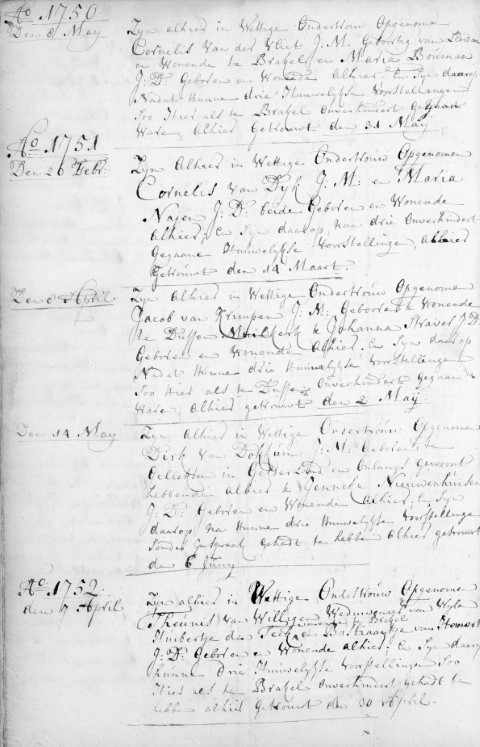 Ao 1750
Den 8 May
Zyn alhier in Wettige Ondertrouw Opgenomen
Cornelis Van der Vliet J: M: Geboortig van
en Wonende te Brakel, en Maria Bouman
J: D: Geboren en Wonende Alhier, en Syn daarop
Nadat Hunne drie Huwelykse Voorstellingen
Soo Hier als te Brakel Onverhindert Gegaan
Ware, Alhier Getrouwt den 31 May
Ao 1751
Den 26 Febr:
Zyn Alhier in Wettige Ondertrouw Opgenomen
Cornelis Van Dyk J: M: en Maria
Nayen J: D: beide Geboren en Wonende
Alhier, en Syn daarop, na drie Onverhindert
Gegaane Huwelykse Voorstellingen, Alhier
Getrouwt den 14 Maart.
Den 8 April
Zyn Alhier in Wettige Ondertrouw Opgenomen
Jacob van J: M: Geboren & Wonende
te Dussen & Johanna J: D:
Geboren en Wonende Alhier: en Syn daarop
Nadat Hunne drie Huwelykse Voorstellinge
Soo Hier als te Dussen Onverhindert Gegaan
Ware, Alhier getrouwt den 2 May
Den 14 May
Zyn Alhier in Wettige Ondertrouw Opgenomen
Dirk van J: M: Geboren
in Gelderland en Onlangs Gewoont
hebbende alhier & Jenneke Nieuwenhuisen
J: D: Geboren en Wonende Alhier, en Syn
daarop na Hunne drie Huwelykse Voorstellinge
sonder gehadt te hebbe Alhier getrouwt
den 6 Juny
Ao 1752
den 7 April
Zyn alhier in Wettige Ondertrouw Opgenomen
Theunis van Willigen Weduwenaar van Wyle
Huibertje de wonende te Brakel van
J: D: Geboren en Wonende alhier: en Syn daarop
hunne Drie Huwelykse Voorstellingen Soo
Hier als te Brakel Onverhindert gehadt te
hebbe alhier Getrouwt den 30 April.